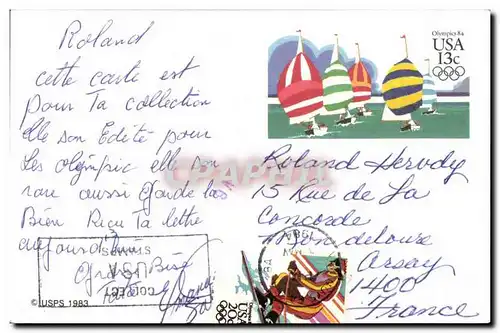 Roland
cette carte est
pour Ta collection
elle son Edité pour
Les olympic elle son
rare aussi garde las
Bien Reçu Ta lettre
aujourd'hui
Grosse Bise
Olympics 84
USA
13c
Roland Hervdy
15 Rue de La
Concorde
Orsay
1400
France
© USPS 1983
USA
20c
CPAPHIL